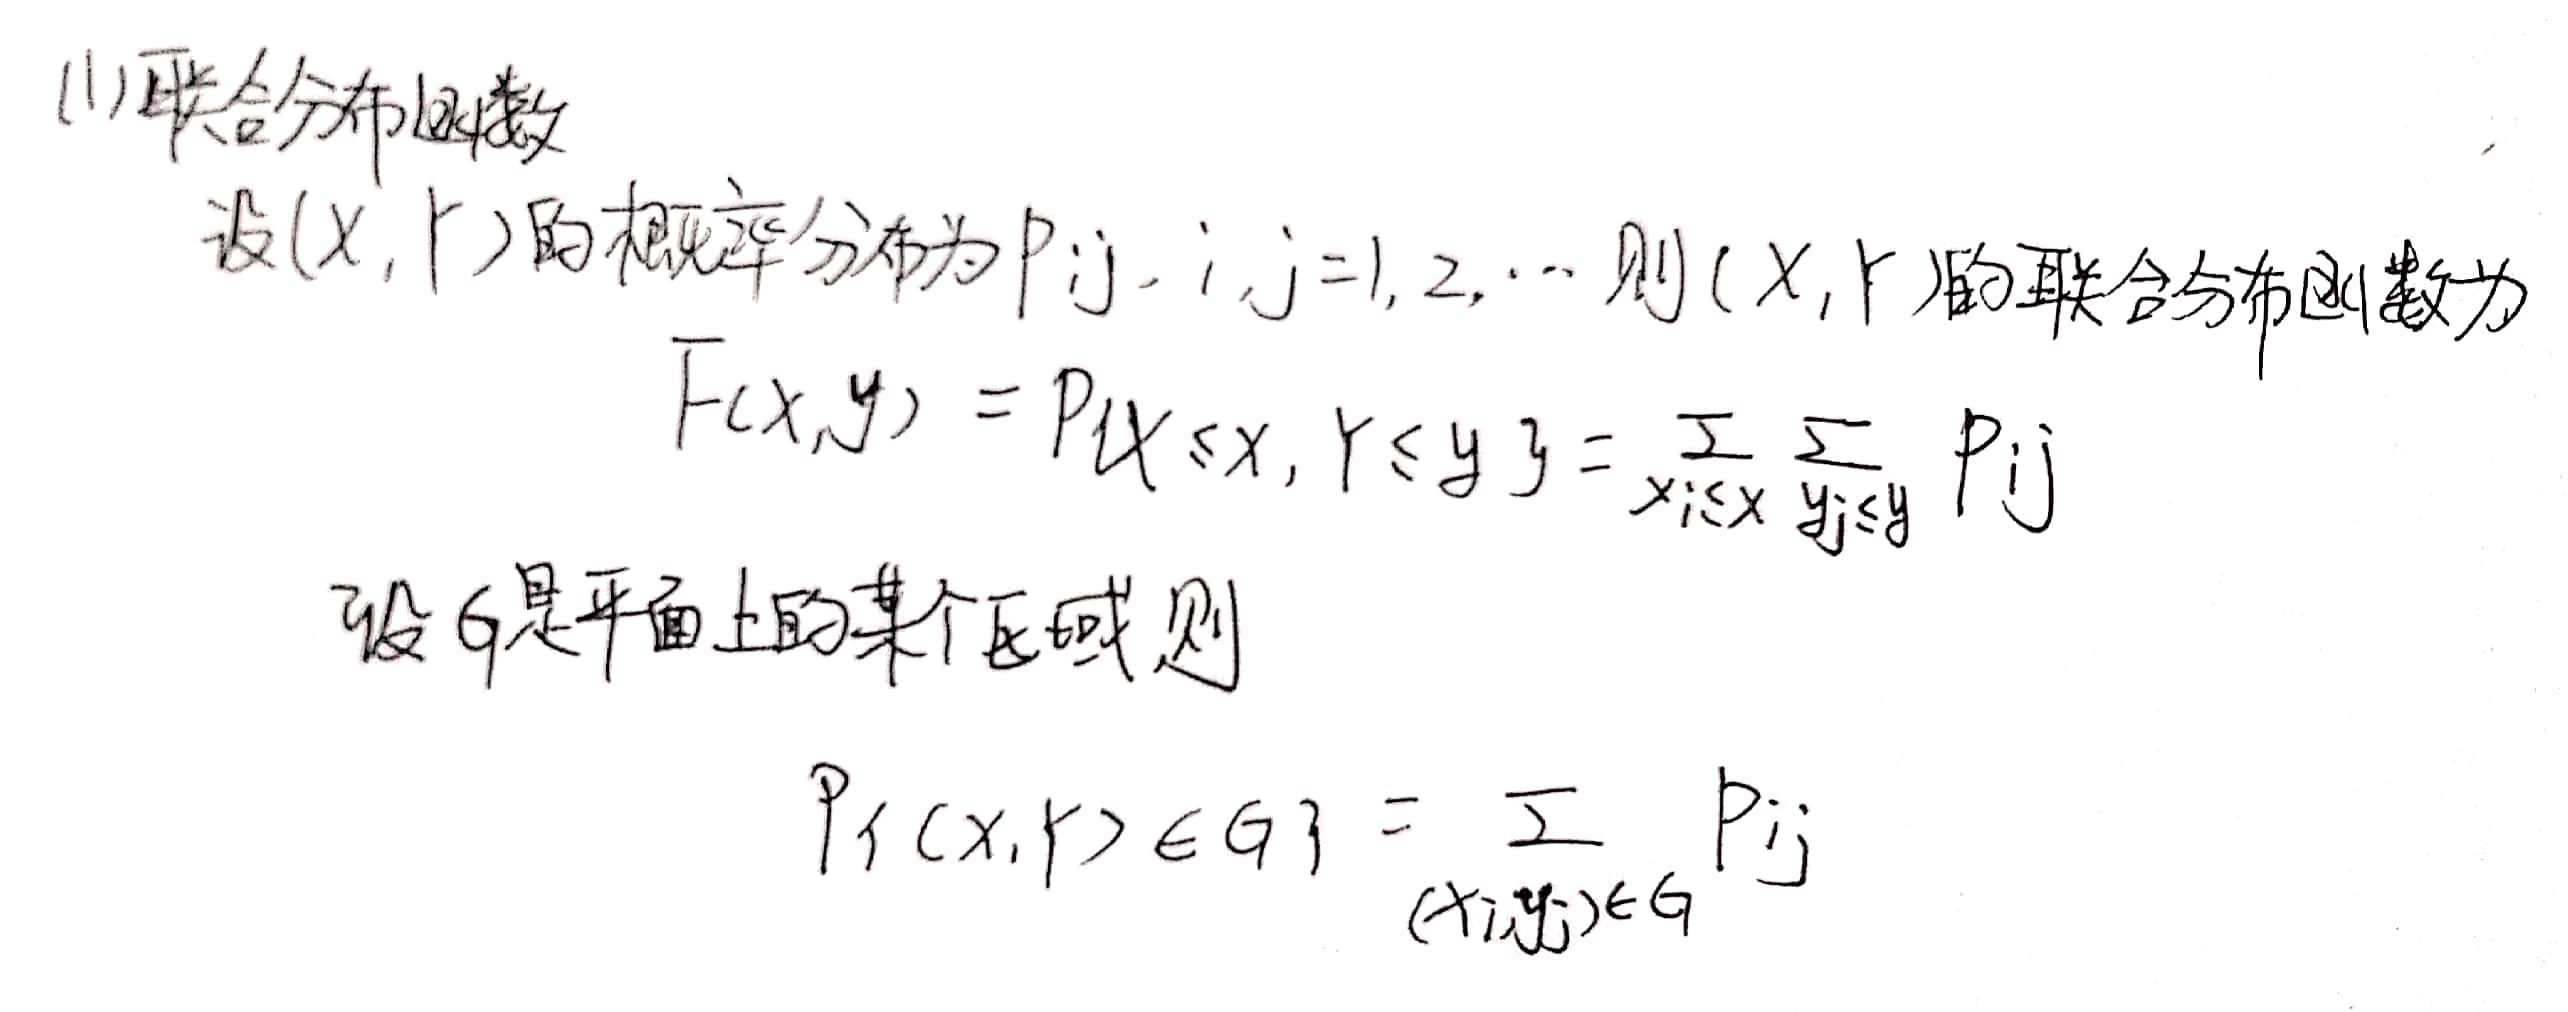 (1)联合分布函数
设(X,Y)的概率分布为Pij. i,j=1,2,… 则(X,Y)的联合分布函数为
F(x,y) = P{X≤x, Y≤y} = ∑_{xi≤x} ∑_{yj≤y} Pij
设G是平面上的某个区域则
P{(X,Y)∈G} = ∑_{(xi,yj)∈G} Pij